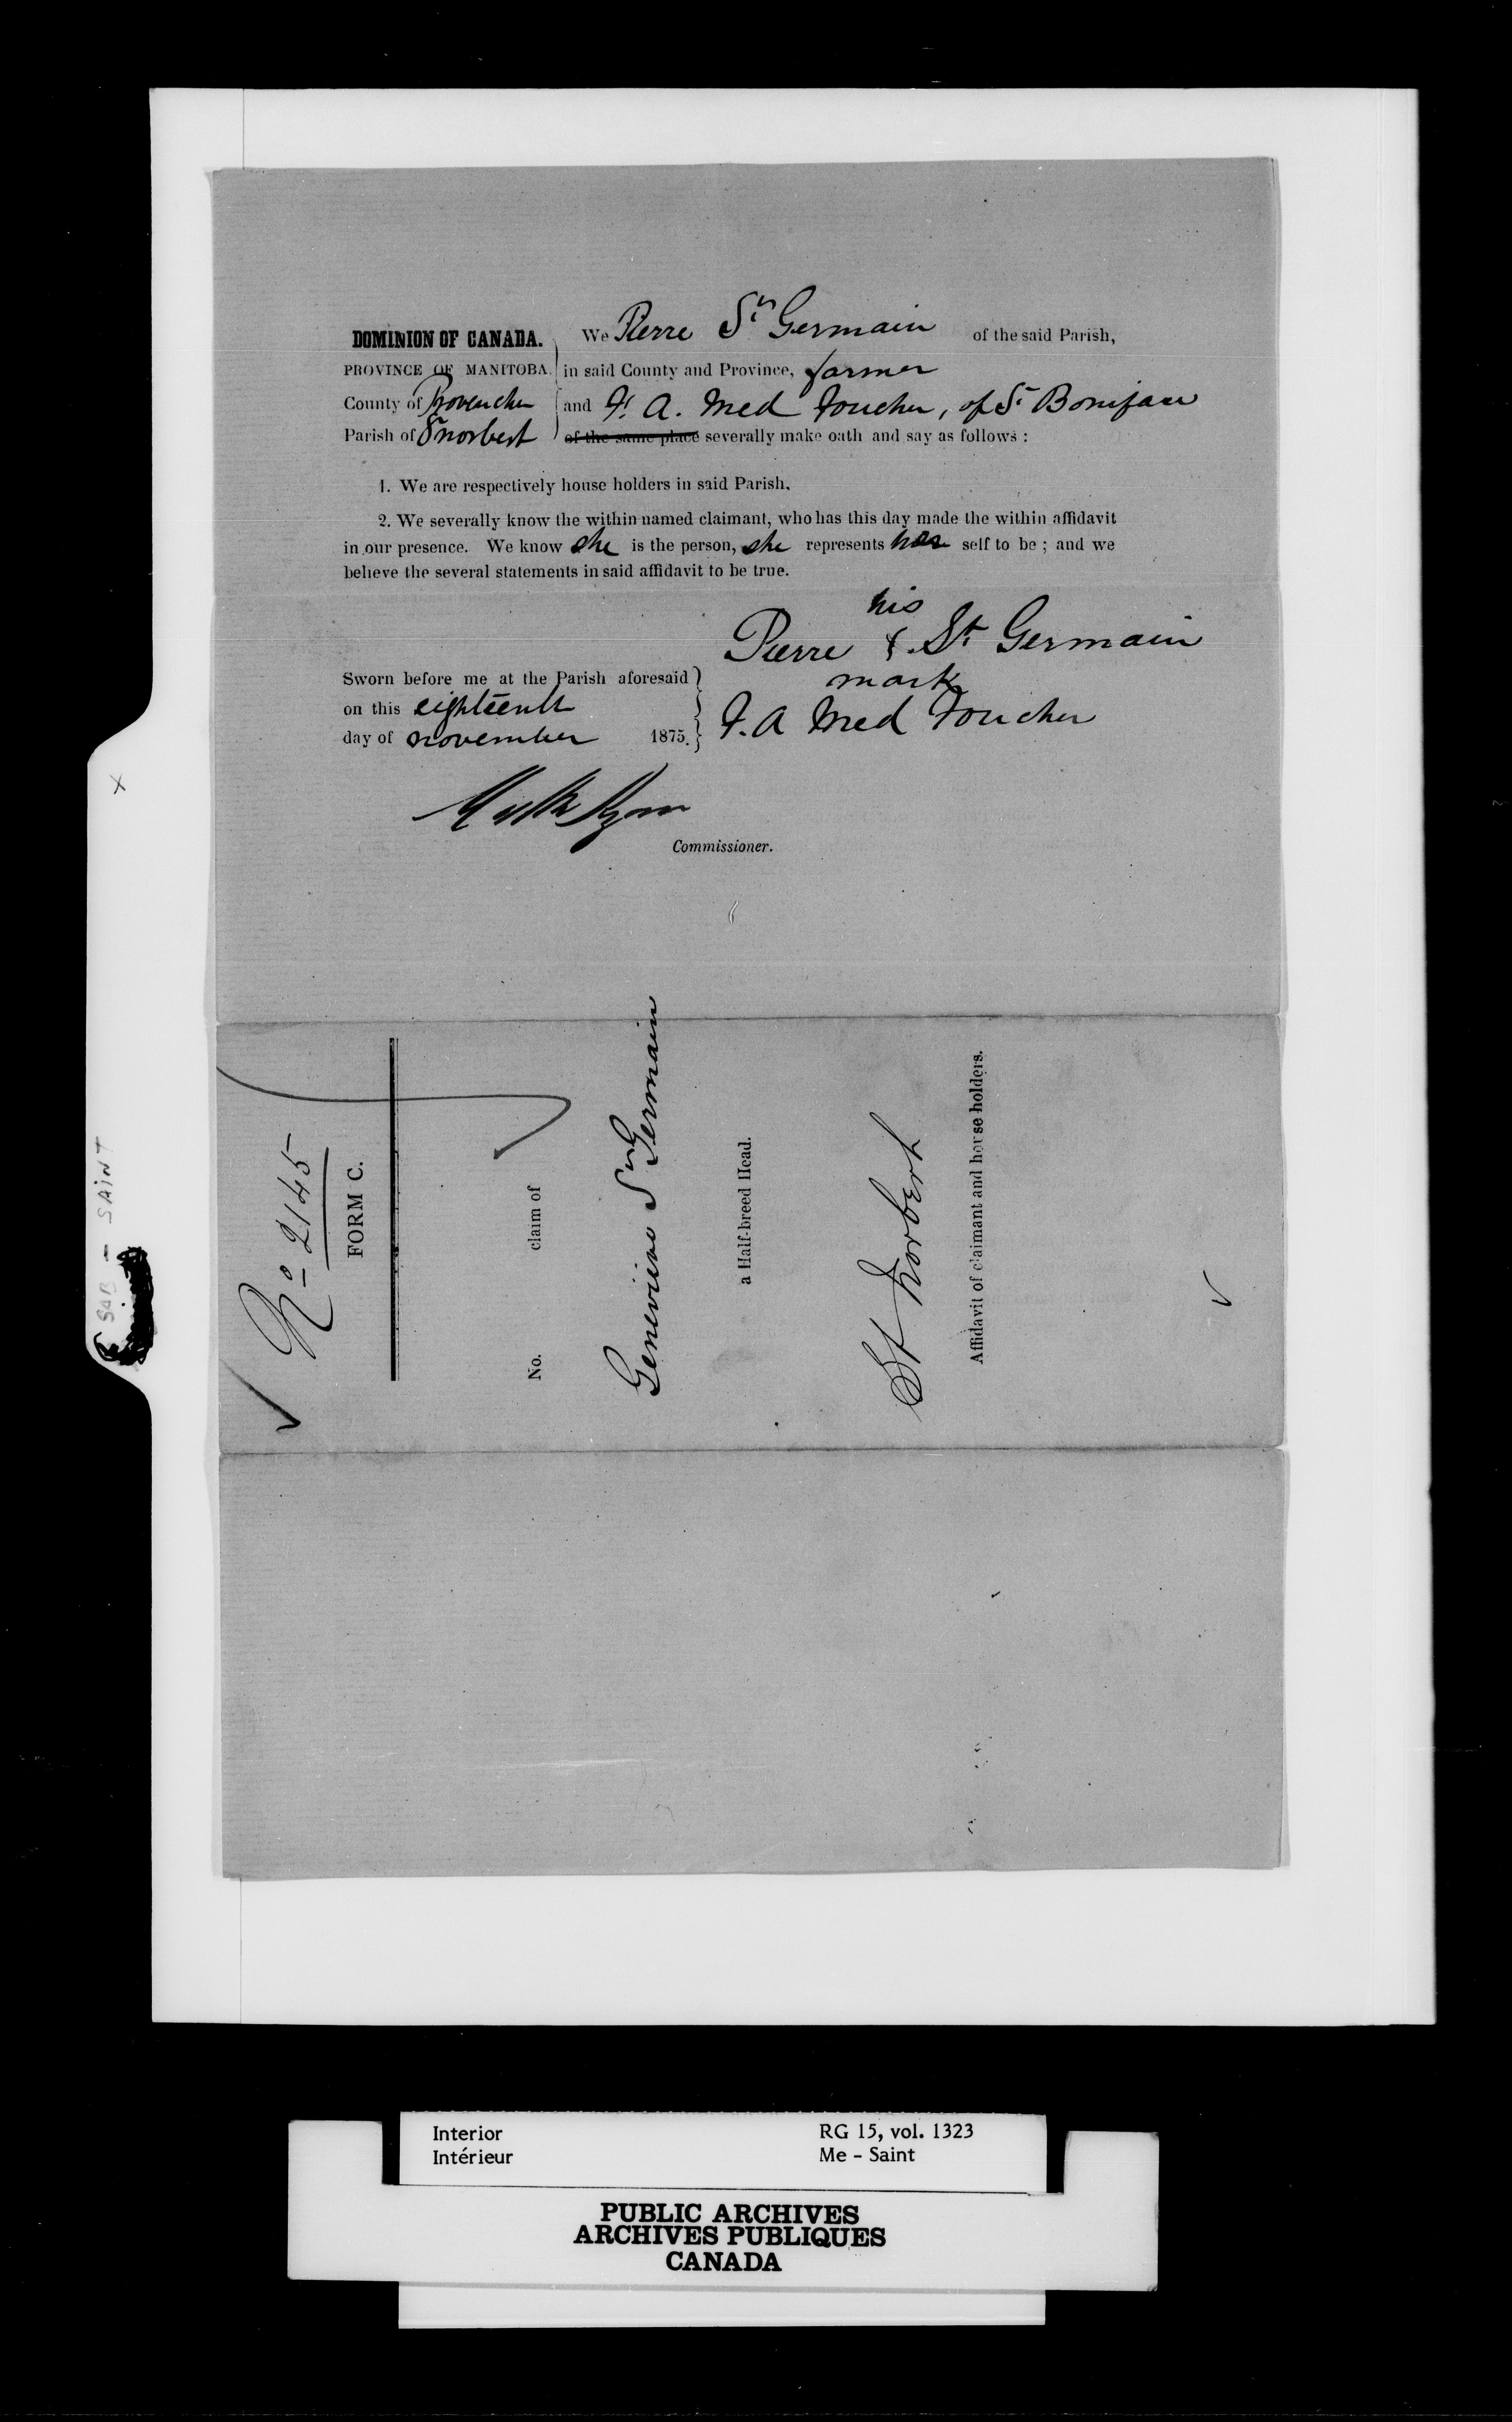 DOMINION OF CANADA.
PROVINCE OF MANITOBA.
County of Provencher
Parish of St norbert
We Pierre St Germain of the said Parish,
in said County and Province, farmer
and F. A. Med Foucher, of St Boniface
of the same place severally make oath and say as follows :
1. We are respectively house holders in said Parish,
2. We severally know the within named claimant, who has this day made the within affidavit
in our presence. We know she is the person, she represents her self to be ; and we
believe the several statements in said affidavit to be true.
his
Pierre X St Germain
mark
Sworn before me at the Parish aforesaid
on this eighteenth
day of november 1875.
F. A Med Foucher
Commissioner.
No 2145
FORM C.
No. claim of
Geneviève St Germain
a Half-breed Head.
St Norbert
Affidavit of claimant and horse holders.
SAB - SAINT
X
Interior
Intérieur
RG 15, vol. 1323
Me - Saint
PUBLIC ARCHIVES
ARCHIVES PUBLIQUES
CANADA